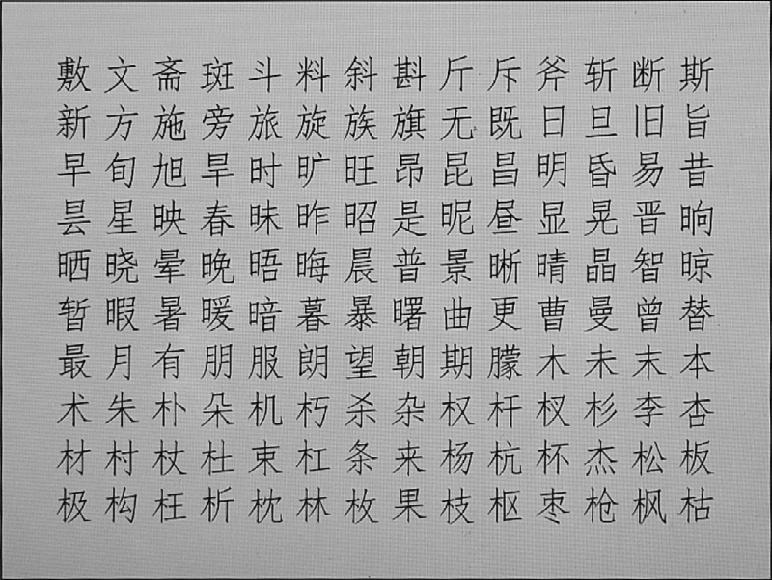 敷文斋斑斗料斜斟斤斥斧斩断斯
新方施旁旅旋族旗无既日旦旧旨
早旬旭旱时旷旺昂昆昌明昏易昔
昙星映春昧昨昭是昵昼显晃晋晌
晒晓晕晚晤晦晨普景晰晴晶智晾
暂暇暑暖暗暮暴曙曲更曹曼曾替
最月有朋服朗望朝期朦木未末本
术朱朴朵机朽杀杂权杆杈杉李杏
材村杖杜束杠条来杨杭杯杰松板
极构枉析枕林枚果枝枢枣枪枫枯